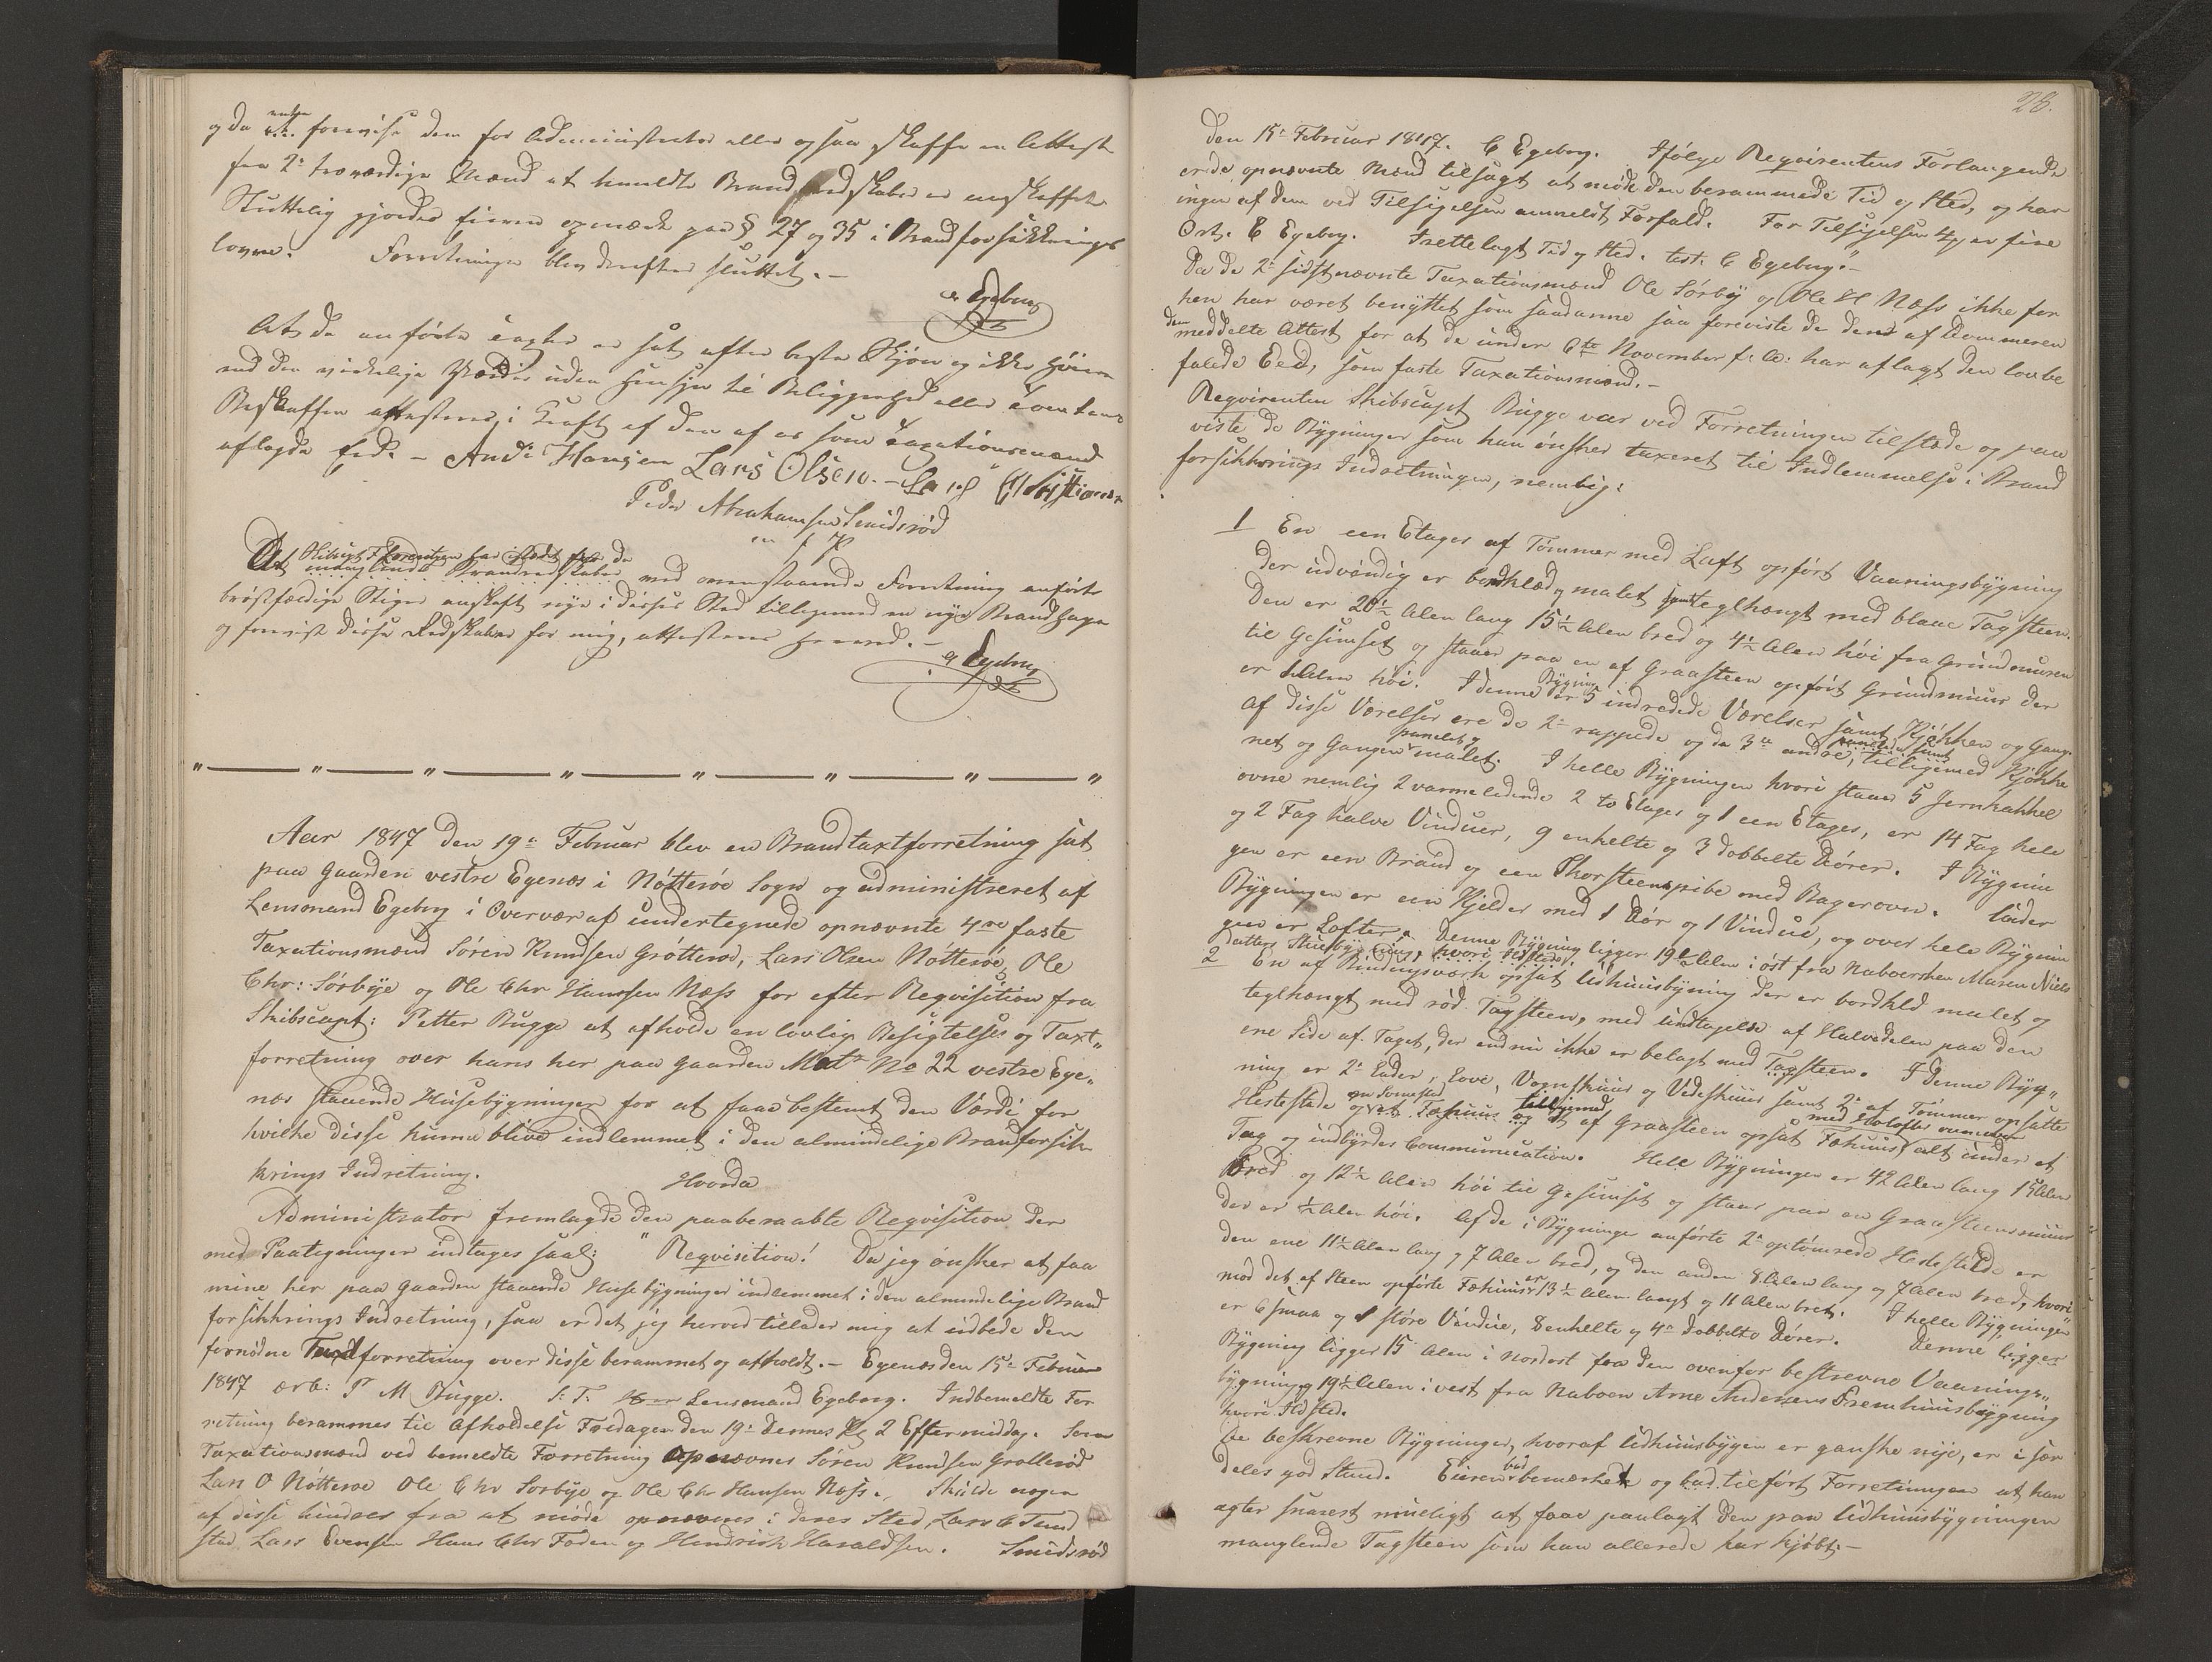 og da enten forevise dem for Administrator eller ogsaa skaffe en Attest
fra 2de troværdige Mænd at bemeldte Brandredskaber er anskaffet
Sluttelig gjordes Eieren opmærks paa § 27 og 35 i Brandforsikkrings
loven. Forretningen blev derefter sluttet.-
C Egeberg
At de anførte Taxter er sat efter bedste Skjøn og ikke høiere
end den virkelige Værdie uden Hensyn til Beliggenhed eller
Beskaffen attesteres i Kraft af den af os som Taxationsmænd
aflagde Eed. - Anders Hansen Lars Olsen.- Lars Christiansen
Peder Abrahamsen Smidsrød
m f P
At Skibscpt F Lorentzen har istedetfor de
mangl ende Brandredskaber ved ovenstaaende Forretning anførte
brøstfældige Stiger anskaft nye i disses Sted tilligemed en nye Brandhage
og forevist disse Redskaber for mig, attesteres herved.-
C Egeberg
" — " — " — " — " — " — " — "
Aar 1847 den 19de Februar blev en Brandtaxtforretning sat
paa Gaarden vestre Egenes i Nøtterøe Sogn og administreret af
Lensmand Egeberg i Overvær af undertegnede opnævnte 4re faste
Taxationsmænd Søren Knudsen Grøtterød, Lars Olsen Nøtterøe, Ole
Chr: Sørbye og Ole Chr Hanssen Næss for efter Reqvisition fra
Skibscapt: Petter Bugge at afholde en lovlig Besigtelses og Taxt„
forretning over hans her paa Gaarden Matr No 22 vestre Ege„
nes staaende Husebygninger for at faae bestemt den Værdi for
hvilke disse kunne blive indlemmet i den almindelige Brandforsik
krings Indretning.
Hvorda
Administrator fremlagde den paaberaabte Reqvisition der
med Paategninger indtages saal: "Reqvisition! Da jeg ønsker at faa
mine her paa Gaarden staaende Husebygninger indlemmet i den almindelige Brand
forsikkrings Indretning, saa er det jeg herved tillader mig at udbede den
fornødne Taxtforretning over disse berammet og afholdt.- Egenes den 15de Februar
1847 ærb: P M Bugge. S: T. Lensmand Egeberg. Indbemeldte For
retning berammes til Afholdelse Fredagen den 19de dennes Kl 2 Eftermiddag. Som
Taxationsmænd ved bemeldte Forretning opnævnes Søren Knudsen Grøtterød
Lars O Nøtterøe Ole Chr Sørbye og Ole Chr Hansen Næss. Skulde nogen
af disse hindres fra at møde opnævnes i deres Sted, Lars C Tand
stad Lars Evensen Hans Chr Foden og Hendrich Haraldsen. Smidsrød
28.
den 15de Februar 1847. C Egeberg. Ifølge Reqvirentens Forlangende
er de opnævnte Mænd tilsagt at møde den berammede Tid og Sted, og har
ingen af dem ved Tilsigelsen anmeldt Forfald. For Tilsigelsen 4 er fire
Ort. C Egeberg. Fretteligt Tid og Sted. test: C Egeberg."-
Da de 2de sidstnævnte Taxationsmænd Ole Sørby og Ole H Næss ikke før
hen har været benyttet som saadanne saa foreviste de dem af Dommeren
meddelte Attest for at de under 6te November f: A: har aflagt den lovbe
falede Eed, som faste Taxationsmænd.-
Reqvirenten Skibscapt Bugge var ved Forretningen tilstede og paa
viste de Bygninger som han ønsker taxeret til Indlemmelse i Brand
forsikkrings Indretningen, nemlig:
1 En een Etages af Tømmer med Laft opført Vaaningsbygning
der udvendig er bordklæd og malet samt teglhængt med blaae Tagsteen.
Den er 20½ Alen lang 15½ Alen bred og 4½ Alen høi fra Grundmuren
til Gesimset og staaer paa en af Graasteen opført Grundmuur der
er 1 Alen høi. I denne Bygning er 5 indredede Værelser samt Kjøkken og Gang.
af disse Værelser ere de 2de rappede og de 3de andre, panelede samt tilligemed Kjøkke
net og Gangen panelet og malet. I helle Bygningen hvori staaer 5 Jernkakkel
ovne nemlig 2 varmeledende 2 to Etages og 1 een Etages, er 14 Fag hele
og 2 Fag halve Vinduer, 9 enkelte og 3 dobbelte Dører. I Bygnin
gen er een Brand og een Skorsteenspibe med Bagerovn. Under
Bygningen er een Kjelder med 1 Dør og 1 Vindue, og over hele Bygnin
gen er Lofter. Denne Bygning ligger 19½ Alen i øst fra Naboersken Maren Niels
datters Stuebygning, hvori Ildsted.
2 En af Bindingsværk opsat Udhuusbyning der er bordkled malet og
teglhængt med rød Tagsteen, med undtagelse af Halvdelen paa den
ene Side af Taget, der endnu ikke er belagt med Tagsteen. I denne Byg„
ning er 2de Lader, Love, Vognskuur og Vedeskuur samt 2de af Tømmer opsatte
Hestestalde og et Fæhuus tilligemed et af Graasteen opsat Fæhuus med Høelofter ovenover alt under et
Tag og indbyrdes Communication. Hele Bygningen er 42 Alen lang 15 Alen
bred og 12½ Alen høi til Gesimset og staar paa en Graasteensmuur
der er ½ Alen høi. Af de i Bygninge anførte 2de optømrede Hestestalde er
den ene 11½ Alen lang og 7 Alen bred, og den anden 8 Alen lang og 7 Alen bred, hvori
mod det af Steen opførte Fæhuus er 13½ Alen langt og 11 Alen bret. I helle Bygningen
er 6 smaa og 1 støre Vindue, 8 enkelte og 4re dobbelte Dører. Denne ligger
Bygning ligger 15 Alen i nordost fra den ovenfor bestrevne Vaanings„
bygning og 19½ Alen i vest fra Naboen Arne Andersens Fremhuusbygning
hvori Ildsted.
De beskrevne Bygninger, hvoraf Udhuusbygen er ganske nye, er i sær
deles god Stand. Eieren bemærkede og bad tilført Forretningen at han
agter snarest mueligt at faae paalagt den paa Udhuusbygningen
manglende Tagsteen som han allerede har kjøbt.-